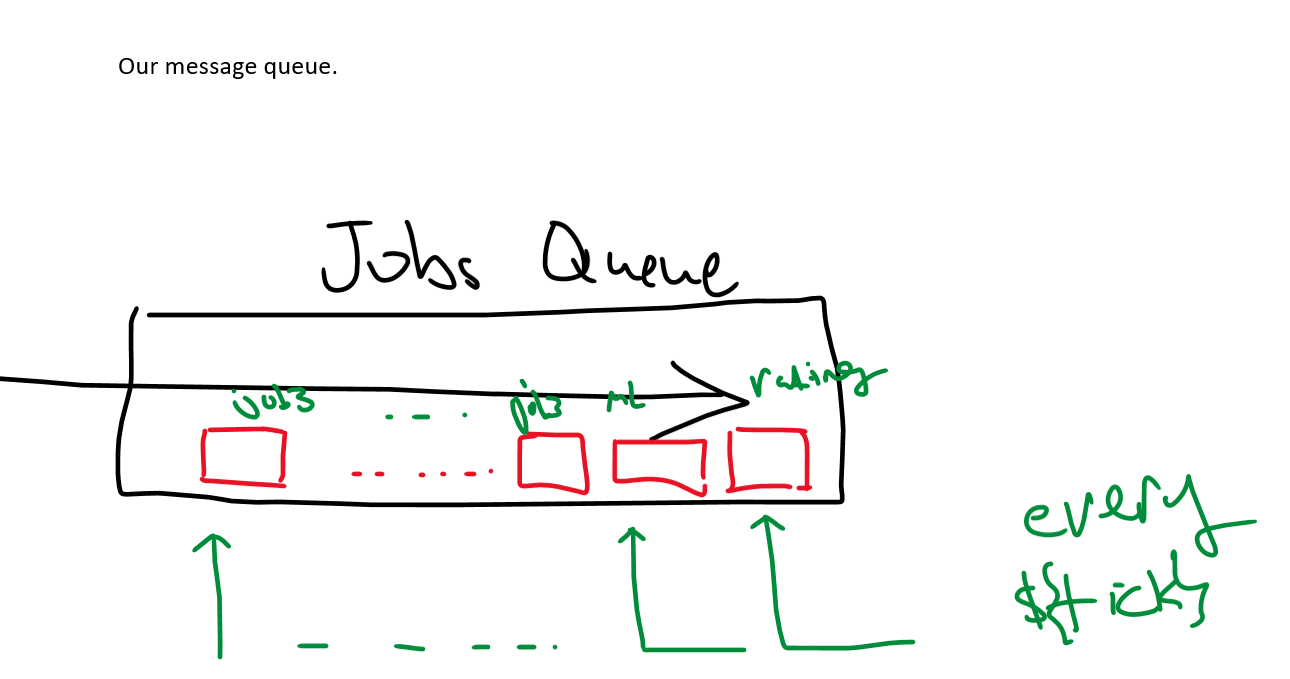 Our message queue.
Jobs Queue
job3 job3 ML rating
every
${tick}